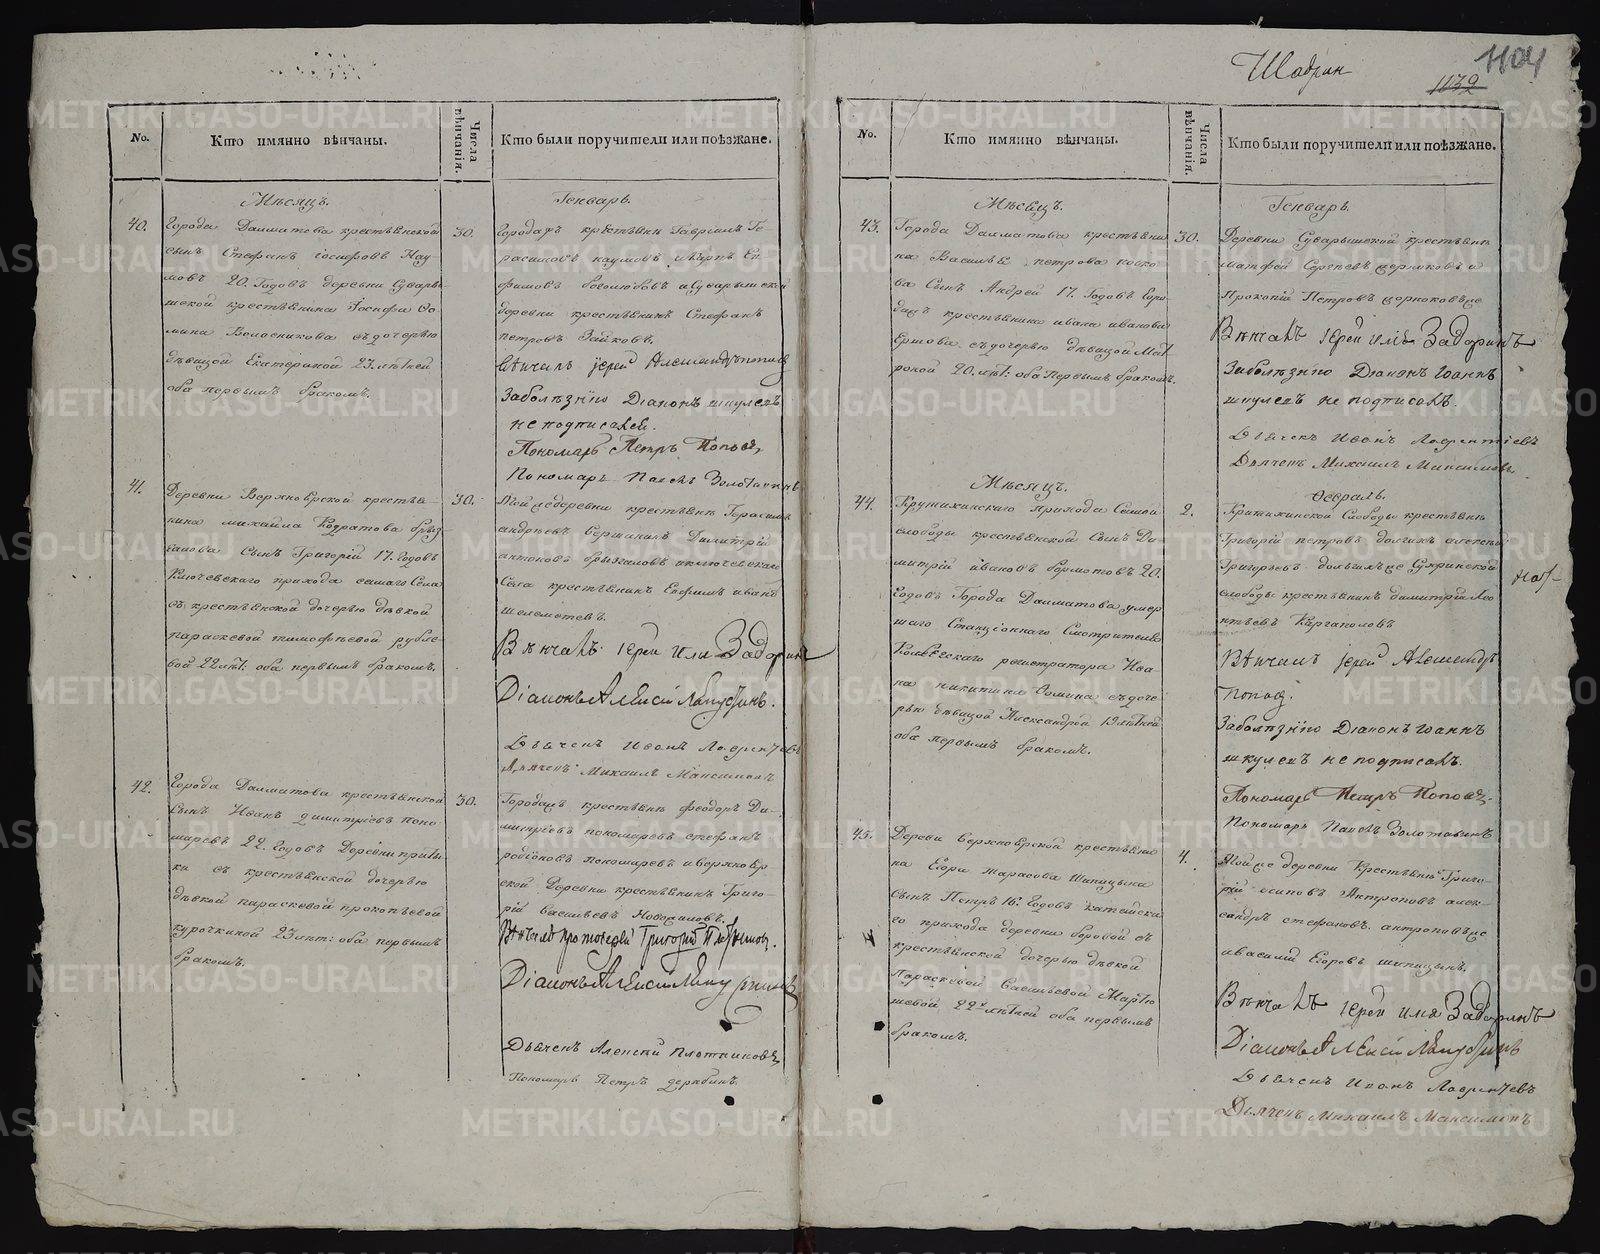 Шадрин
1104
1032
No.
Кто имянно вѣнчаны.
Числа вѣнчанія.
Кто были поручители или поѣзжане.
Мѣсяцъ.
Генварь.
40.
Города Далматова крестьянской
сынъ Стефанъ Іосифовъ Нау
мовъ 20. Годовъ деревни Сувары
шской крестьянина Іосифа Ѳо
мина Колесникова съ дочерью
дѣвицой Екатериной 23. лѣтней
оба первымъ бракомъ.
30.
Городахъ крестьянъ Гавріилъ Ге
расимовъ наумовъ
фимовъ боголюбовъ а Суварышской
деревни крестьянинъ Стефанъ
петровъ Зайковъ.
вѣнчалъ іерей Александръ поповъ
За болѣзнію Діаконъ шкулевъ
не подписался.
Пономарь Петръ Поповъ
Пономарь Павелъ Золотавинъ
41.
Деревни Верхноярской крестья-
нина михайла Кодратова брыз-
галова Сынъ Григорій 17. Годовъ
Ключевскаго прихода самаго Села
съ крестьянской дочерью дѣвкой
параскевой тимофѣевой рубле-
вой 22 лѣт: оба первымъ бракомъ.
30.
Той же деревни крестьянъ Герасимъ
андрѣевъ Вершининъ Димитрій
антоновъ брызгаловъ а ключевскаго
Села крестьянинъ Ефимъ ивановъ
шелеметевъ.
Вѣнчалъ іерей Илія Задоринъ
Діаконъ Алексій Лапустинъ.
Дьячекъ Иванъ Лаврентьевъ
Дьячекъ Михаилъ Максимовъ
42.
Города Далматова крестьянской
сынъ Иванъ димитріевъ поно
маревъ 22. Годовъ Деревни приты
ки съ крестьянской дочерью
дѣвкой параскевой прокопьевой
курочкиной 23 лѣт: оба первымъ
бракомъ.
30.
Городахъ крестьянъ феодоръ Ди-
митріевъ пономаревъ стефанъ
родіоновъ пономаревъ и верхнояр
ской Деревни крестьянинъ Григо-
рій Васильевъ
Вѣнчалъ протоіерей Григорій Плотниковъ.
Діаконъ Алексій Лапустинъ
Дьячекъ Алексій Плотниковъ
Пономарь Петръ дерябинъ
No.
Кто имянно вѣнчаны.
Числа вѣнчанія.
Кто были поручители или поѣзжане.
Мѣсяцъ.
Генварь.
43.
Города Далматова крестьяни
на Василья петрова коско
ва Сынъ Андрей 17. Годовъ Горо
дахъ крестьянина ивана иванова
Ершова съ дочерью дѣвицой Мат
роной 20. лѣт: оба первымъ бракомъ.
30.
Деревни Суварышской крестьянъ
матфей Сергѣевъ черноковъ и
Прокопій Петровъ черноковъ же
Вѣнчалъ іерей илія Задоринъ
За болѣзнію Діаконъ Іоаннъ
шкулевъ не подписалъ.
Дьячекъ Иванъ Лаврентьевъ
Дьячекъ Михаилъ Максимовъ
Мѣсяцъ.
Февраль.
44.
Крутихинскаго прихода Самой
слободы крестьянской сынъ Ди-
митрій ивановъ бормотовъ 20.
Годовъ Города Далматова умер
шаго Станціоннаго Смотрителя
Коллежскаго регистратора Ива
на никитина Ѳомина съ доче
рью дѣвицой Александрой 19 лѣтней
оба первымъ бракомъ.
2.
Крутихинской Слободы крестьянъ
Григорій петровъ долгихъ алексѣй
Григорьевъ долгихъ же Сухринской
слободы крестьянинъ димитрій Лео
нтьевъ Каргаполовъ
Вѣнчалъ іерей Александръ
Поповъ.
За болѣзнію Діаконъ Іоаннъ
шкулевъ не подписалъ.
Пономарь Петръ Поповъ.
Пономарь Павелъ Золотавинъ
45.
Деревни Верхноярской крестьяни
на Егора тарасова Шипицына
сынъ Петръ 16. Годовъ катайска
го прихода деревни боровой съ
крестьянской дочерью дѣвкой
Параскевой Васильевой Мартю
шевой 22 лѣтней оба первымъ
бракомъ.
4.
Той же деревни Крестьянъ Григо-
рій осиповъ Антроповъ алек-
сандръ стефановъ антроповъ же
и василій Егоровъ шипицынъ
Вѣнчалъ іерей илія Задоринъ
Діаконъ Алексій Лапустинъ
Дьячекъ Иванъ Лаврентьевъ
Дьячекъ Михаилъ Максимовъ
METRIKI.GASO-URAL.RU